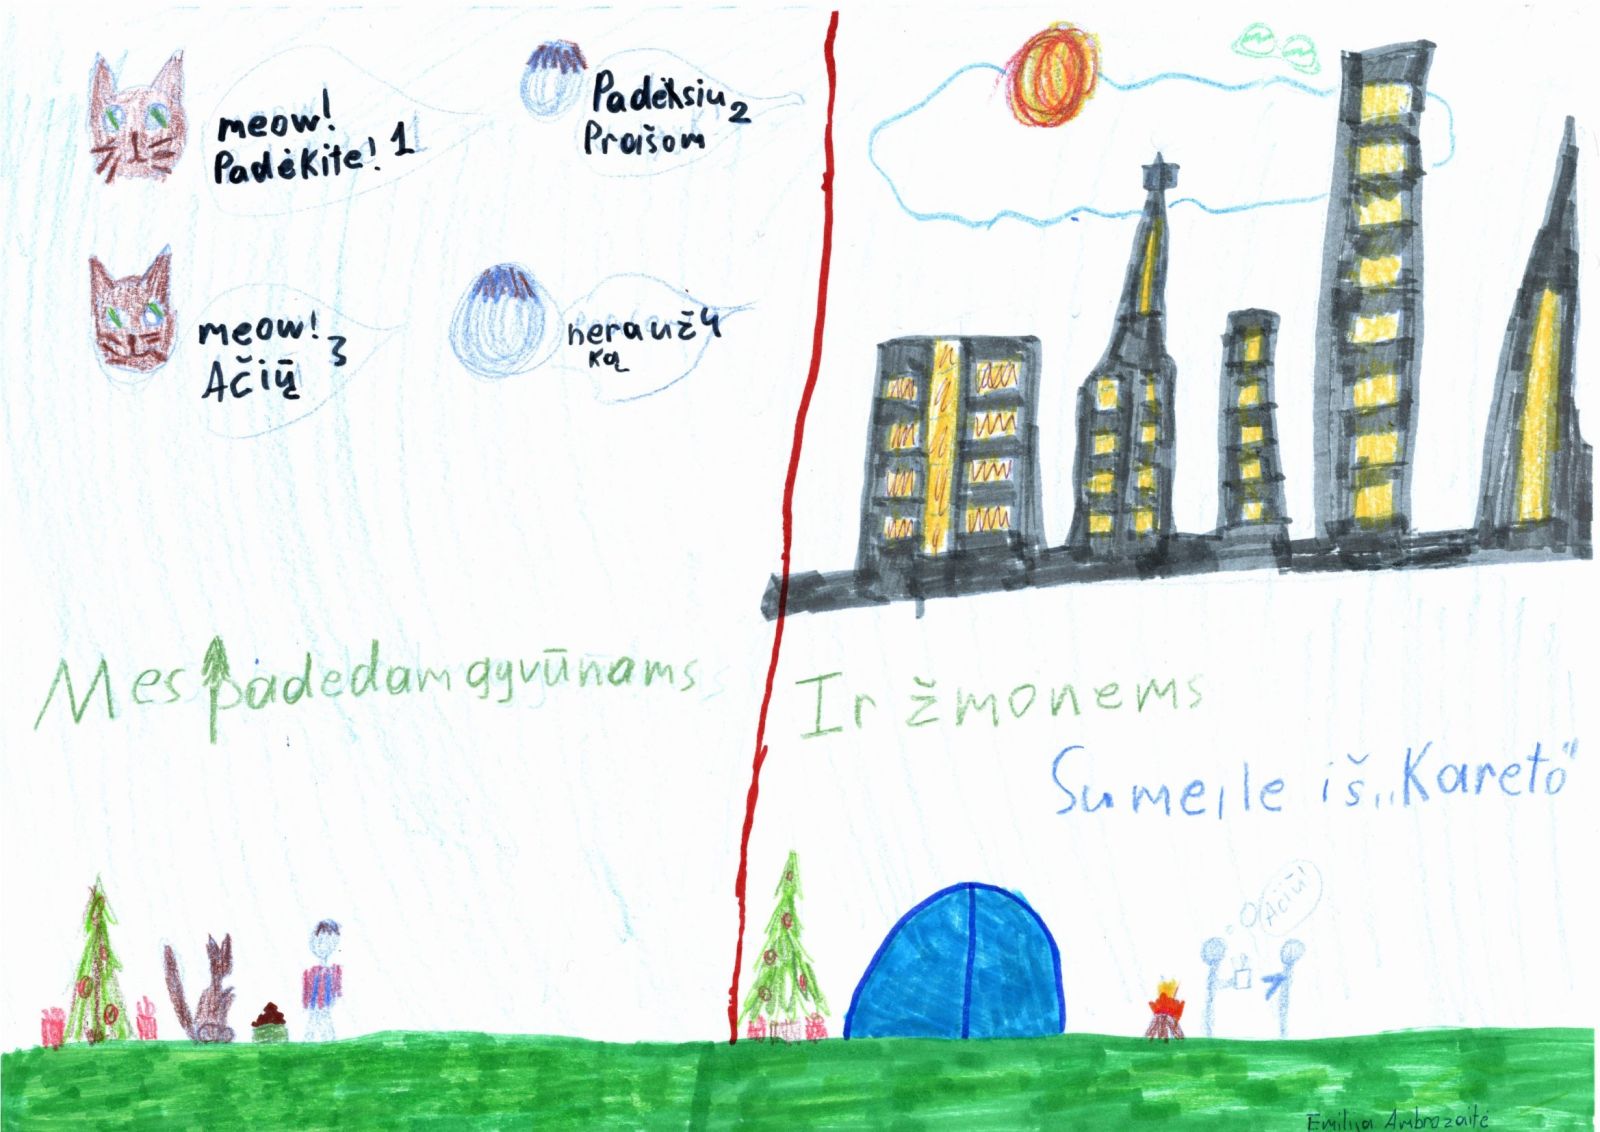 meow!
Padėkite! 1
Padėksiu 2
Prašom
meow! 3
Ačiū
nerauž 4
ką
Mes padedam gyvūnams
Ir žmonems
Su meile iš „Kareto"
Ačiū!
Emilija Ambrozaitė